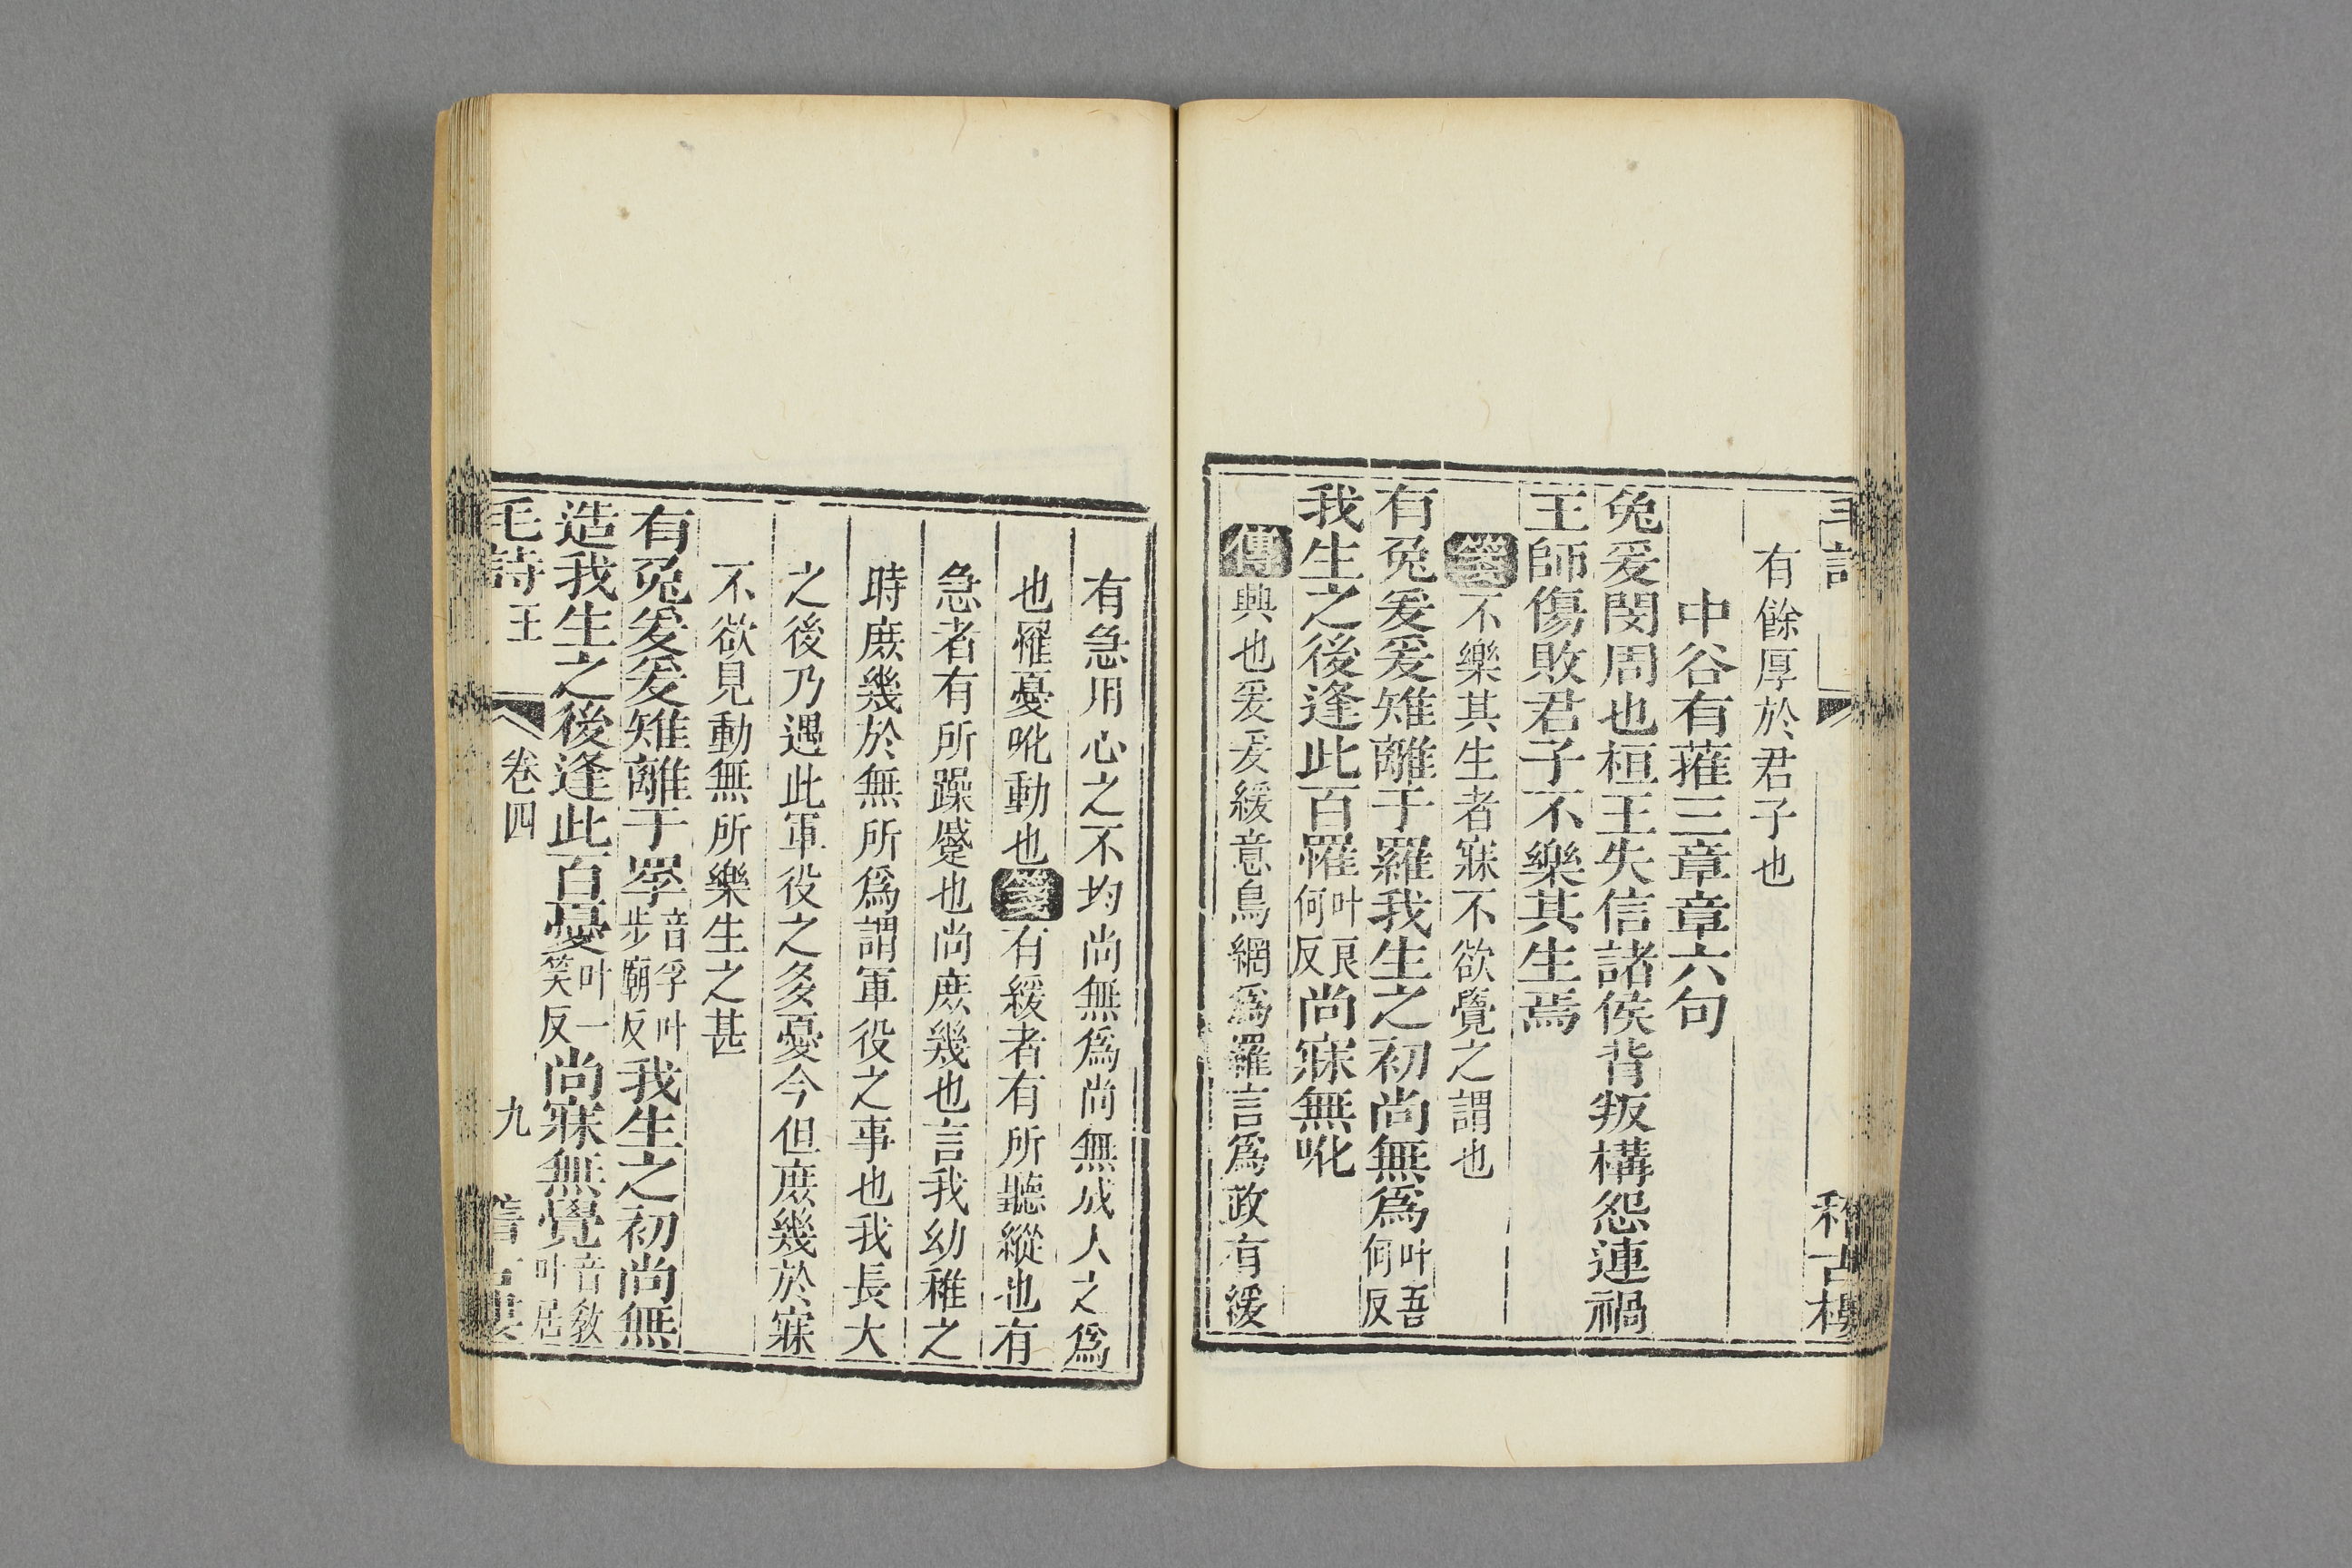 毛詩
稽古樓
有餘厚於君子也
中谷有蓷三章章六句
兔爰閔周也桓王失信諸侯背叛構怨連禍
王師傷敗君子不樂其生焉
箋不樂其生者寐不欲覺之謂也
有兔爰爰雉離于羅我生之初尚無爲叶吾何反
我生之後逢此百罹叶良何反尚寐無吪
傳興也爰爰緩意鳥網爲羅言爲政有緩
有急用心之不均尚無爲尚無成人之爲
也罹憂吪動也箋有緩者有所聽縱也有
急者有所躁蹙也尚庶幾也言我幼稚之
時庶幾於無所爲謂軍役之事也我長大
之後乃遇此軍役之多憂今但庶幾於寐
不欲見動無所樂生之甚
有兔爰爰雉離于罦音孚叶步廟反我生之初尚無
造我生之後逢此百憂叶一笑反尚寐無覺音教叶居
毛詩 王 卷四 九